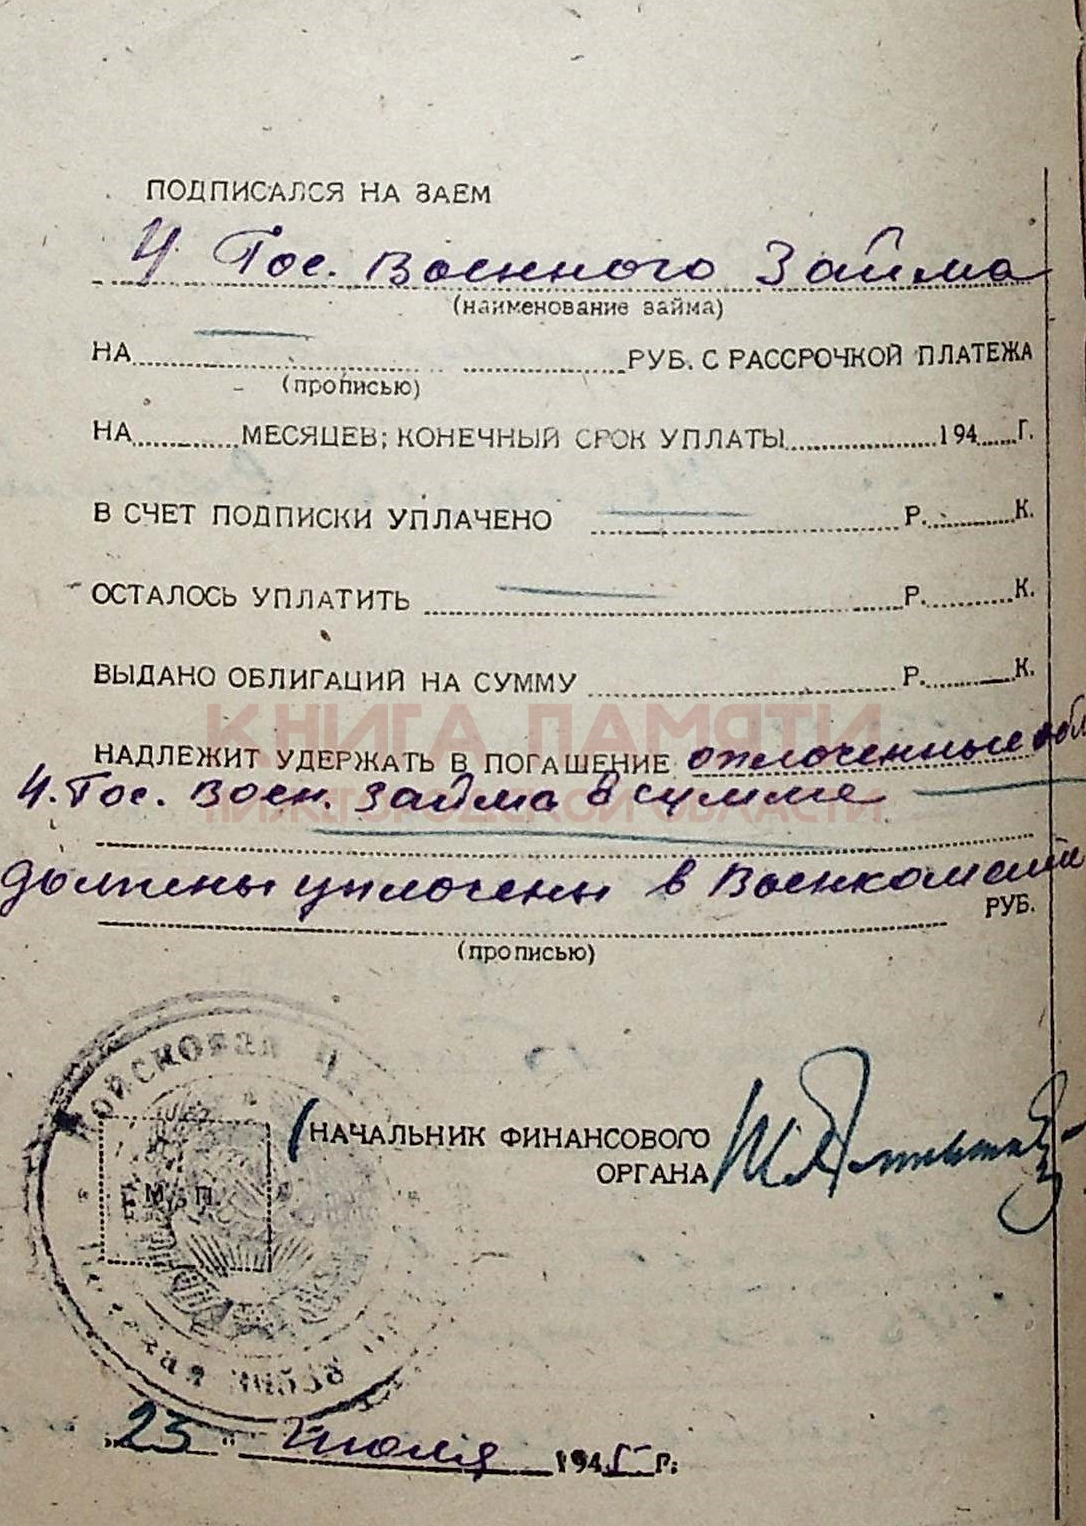 ПОДПИСАЛСЯ НА ЗАЕМ
4 Гос. Военного Займа
(наименование займа)
НА РУБ. С РАССРОЧКОЙ ПЛАТЕЖА
(прописью)
НА МЕСЯЦЕВ; КОНЕЧНЫЙ СРОК УПЛАТЫ 194 Г.
В СЧЕТ ПОДПИСКИ УПЛАЧЕНО Р. К.
ОСТАЛОСЬ УПЛАТИТЬ Р. К.
ВЫДАНО ОБЛИГАЦИЙ НА СУММУ Р. К.
КНИГА ПАМЯТИ
НАДЛЕЖИТ УДЕРЖАТЬ В ПОГАШЕНИЕ оплоченные обл
4. Гос. Воен. Займа в сумме
НИЖЕГОРОДСКОЙ ОБЛАСТИ
должны уплочены в Военкомате
РУБ.
(прописью)
ВОЙСКОВАЯ
М. П.
НАЧАЛЬНИК ФИНАНСОВОГО
ОРГАНА
"25" июля 1945 г.